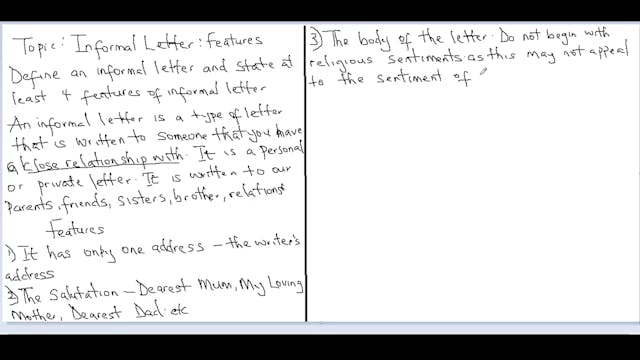 Topic: Informal Letter: Features
Define an informal letter and state at
least 4 features of informal letter
An informal letter is a type of letter
that is written to someone that you have
a close relationship with. It is a personal
or private letter. It is written to our
parents, friends, sisters, brother, relations
Features
1) It has only one address – the writer's
address
2) The Salutation – Dearest Mum, My Loving
Mother, Dearest Dad. etc
3) The body of the letter. Do not begin with
religious sentiments as this may not appeal
to the sentiment of